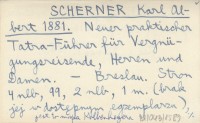 SCHERNER Karl Al-
bert 1881. Neuer praktischer
Tatra-Führer für Vergnü-
gungsreisende, Herren und
Damen. - Breslau. Stron
4 nlb, 99, 2 nlb, 1 m. (brak
jej w dostępnym egzemplarzu),